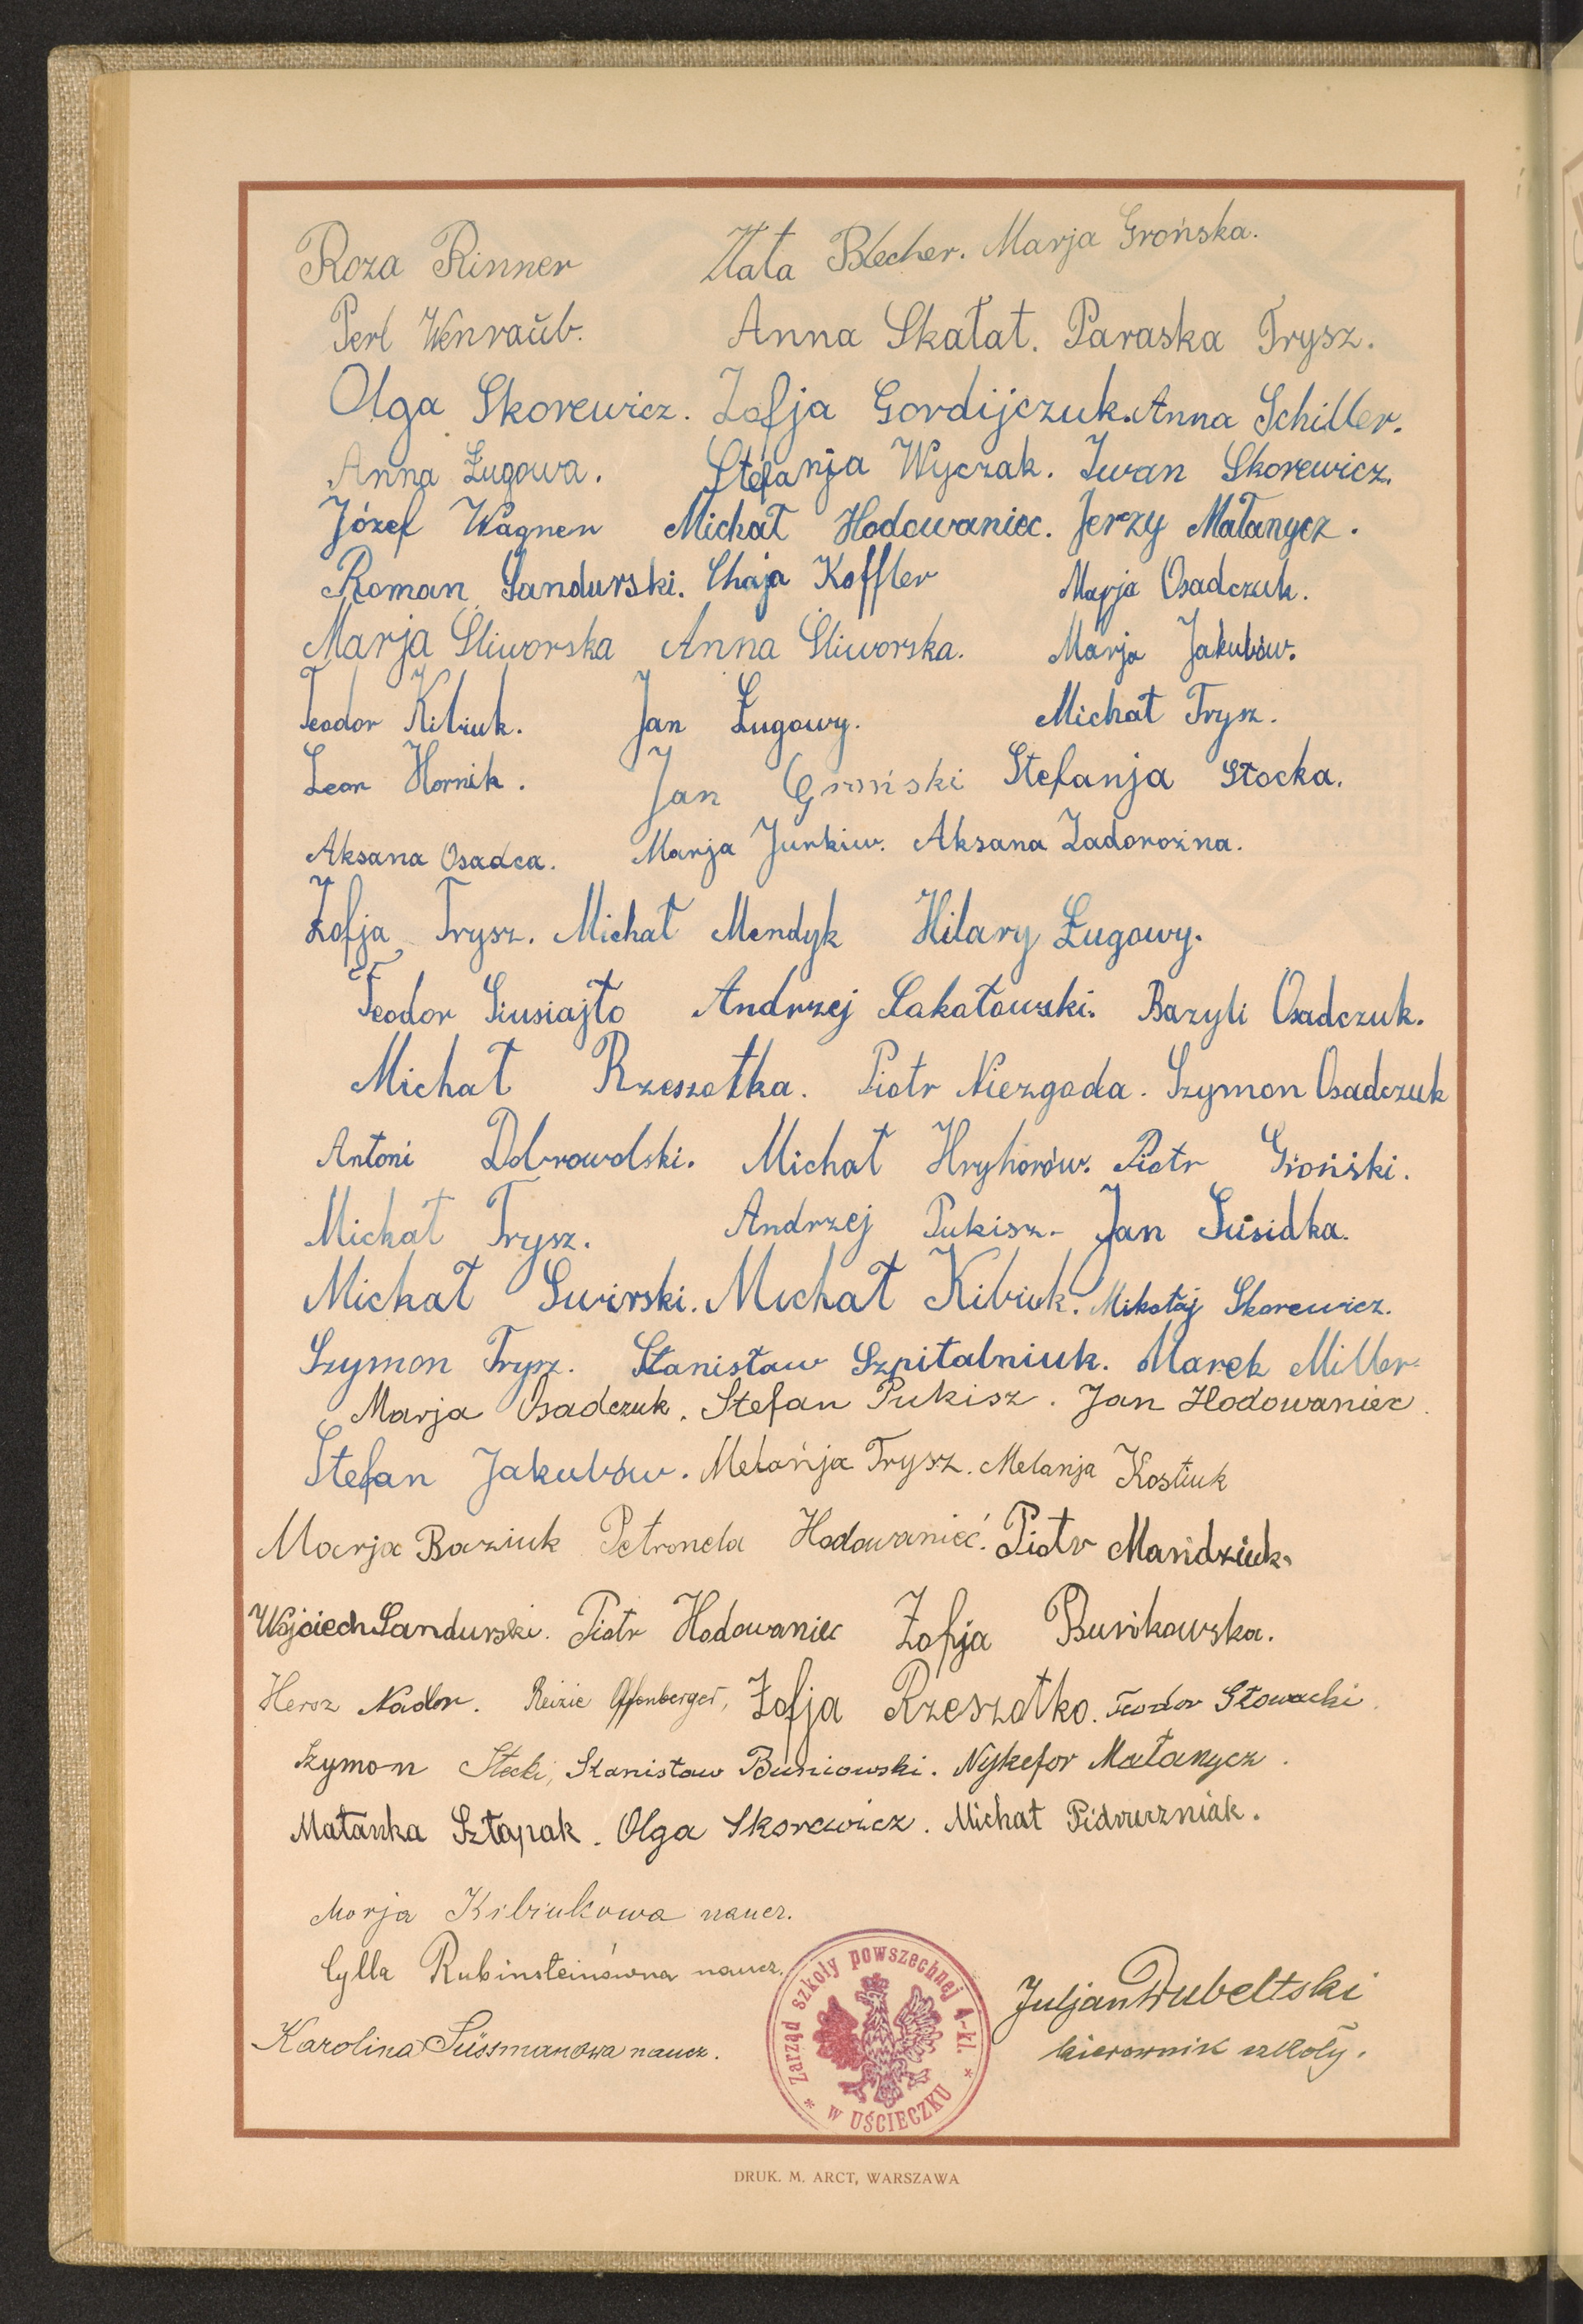 Roza Rinner Złata Blecher. Marja Grońska.
Perl Wenraŭb. Anna Skałat. Paraska Trysz.
Olga Skorewicz. Zofja Gordijczuk. Anna Schiller.
Anna Ługowa. Stefanja Wyczak. Iwan Skorewicz.
Józef Wagner Michał Hodowaniec. Jerzy Małanycz.
Roman Sandurski. Chaja Koffler Marja Osadczuk.
Marja Śliworska Anna Śliworska. Marja Jakubów.
Teodor Kibiuk. Jan Ługowy. Michał Trysz.
Leon Hornik. Jan Groński Stefanja Stocka.
Aksana Osadca. Marja Jurkiw. Aksana Zadorożna.
Zofja Trysz. Michał Mendyk Hilary Ługowy.
Teodor Siusiajło Andrzej Sakatowski. Bazyli Osadczuk.
Michał Rzeszotka. Piotr Niezgoda. Szymon Osadczuk
Antoni Dobrowolski. Michał Hryhorów. Piotr Groński.
Michał Trysz. Andrzej Pukisz. Jan Susidka.
Michał Swirski. Michał Kibiuk. Mikołaj Skorewicz.
Szymon Trysz. Stanisław Szpitalniuk. Marek Miller
Marja Osadczuk. Stefan Pukisz. Jan Hodowaniec.
Stefan Jakubów. Melanja Trysz. Melanja Kostiuk
Marja Baziuk Petronela Hodowanieć. Piotr Mandziuk.
Wojciech Sandurski. Piotr Hodowaniec Zofja Buńkowska.
Hersz Nadler. Reizie Offenberger, Zofja Rzeszotko. Teodor Słowacki.
Szymon Stecki, Stanisław Buniowski. Nykefor Małanycz.
Małanka Sztapak. Olga Skorewicz. Michał Pidruczniak.
Marja Kibiukowa naucz.
Cylla Rubinsteinówna naucz.
Karolina Süssmanowa naucz.
Zarząd szkoły powszechnej 4-kl.
* w UŚCIECZKU *
Juljan Dubeltski
kierownik szkoły.
DRUK. M. ARCT, WARSZAWA